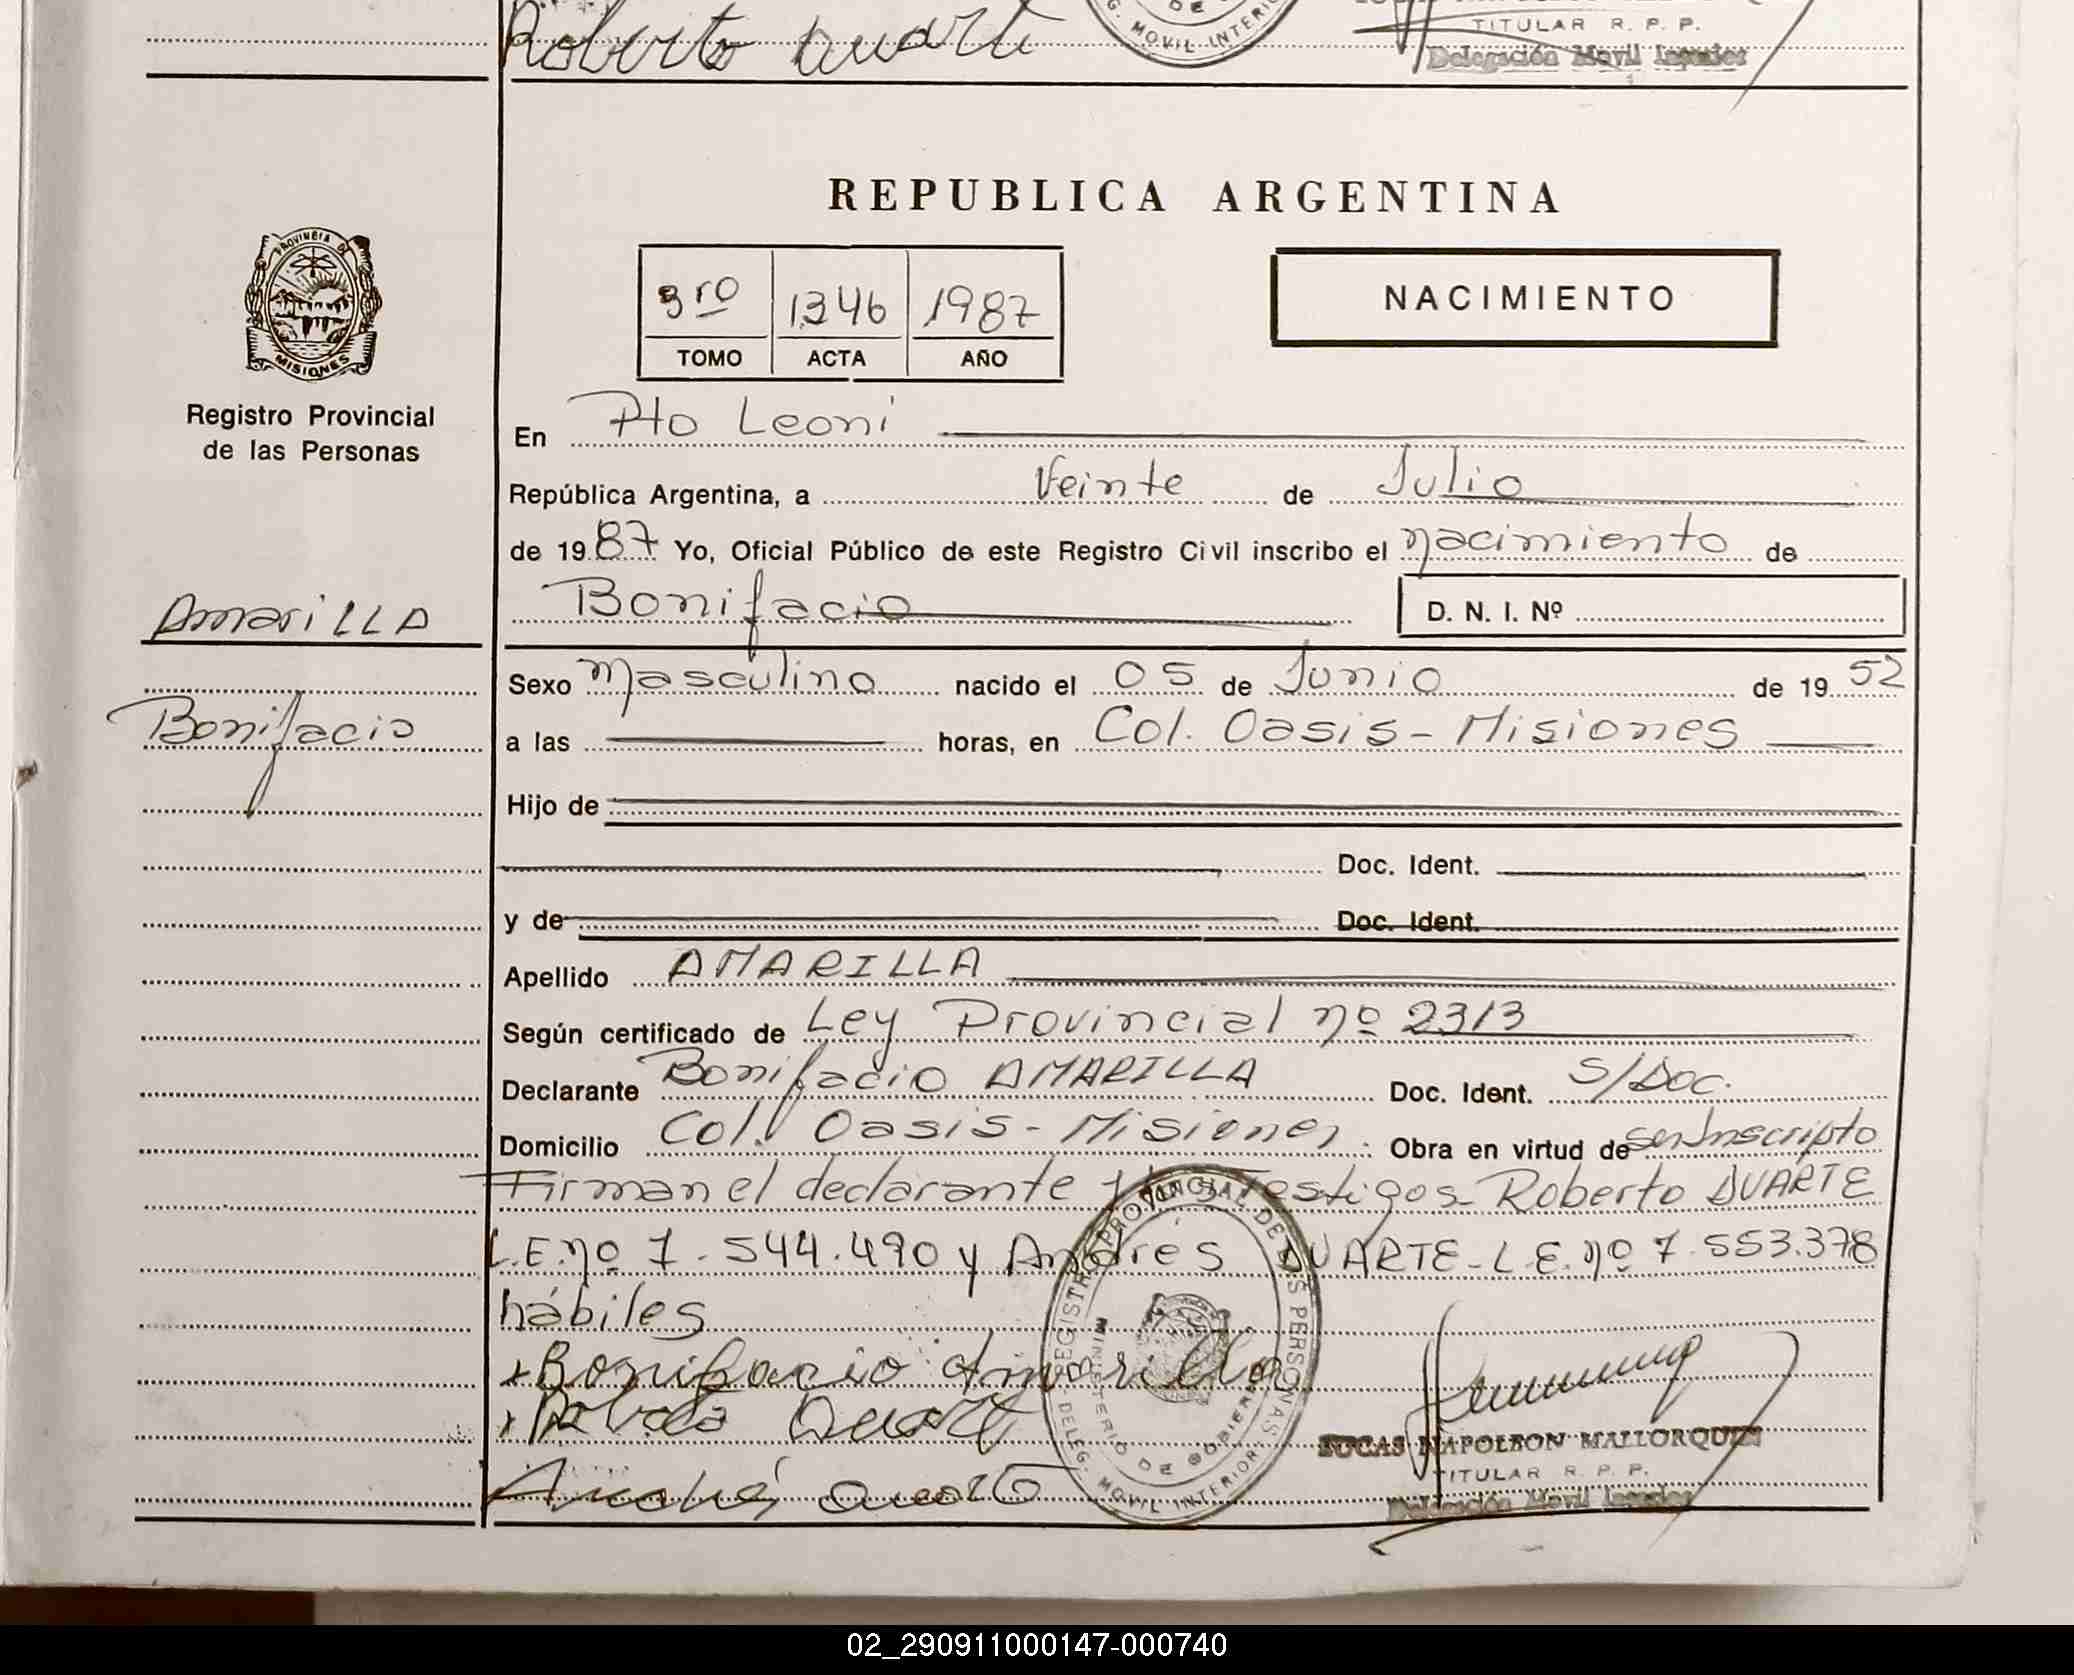 Roberto Duarte
G. MOVIL INTERI
TITULAR R. P. P.
Delegación Movil Interior
REPUBLICA ARGENTINA
PROVINCIA DE
MISIONES
3ro 1346 1987
TOMO ACTA AÑO
NACIMIENTO
Registro Provincial
de las Personas
En Pto Leoni
República Argentina, a Veinte de Julio
de 1987 Yo, Oficial Público de este Registro Civil inscribo el nacimiento de
Bonifacio D. N. I. Nº
AmariLLA
Sexo masculino nacido el 05 de Junio de 1952
Bonifacio
a las horas, en Col. Oasis - Misiones
Hijo de
Doc. Ident.
y de Doc. Ident.
Apellido AMARILLA
Según certificado de Ley Provincial nº 2313
Declarante Bonifacio AMARILLA Doc. Ident. S/Doc.
Domicilio Col. Oasis - Misiones. Obra en virtud de ser Inscripto
Firman el declarante y los Testigos - Roberto DUARTE
L.E. nº 7.544.490 y Andres DUARTE - L.E. nº 7.553.378
hábiles
Bonifacio Amarilla
Roberto Duarte
Andrés Duarte
REGISTRO PROVINCIAL DE LAS PERSONAS
MINISTERIO DE GOBIERNO
DELEG. MOVIL INTERIOR
LUCAS NAPOLEON MALLORQUIN
TITULAR R. P. P.
Delegación Movil Interior
02_290911000147-000740